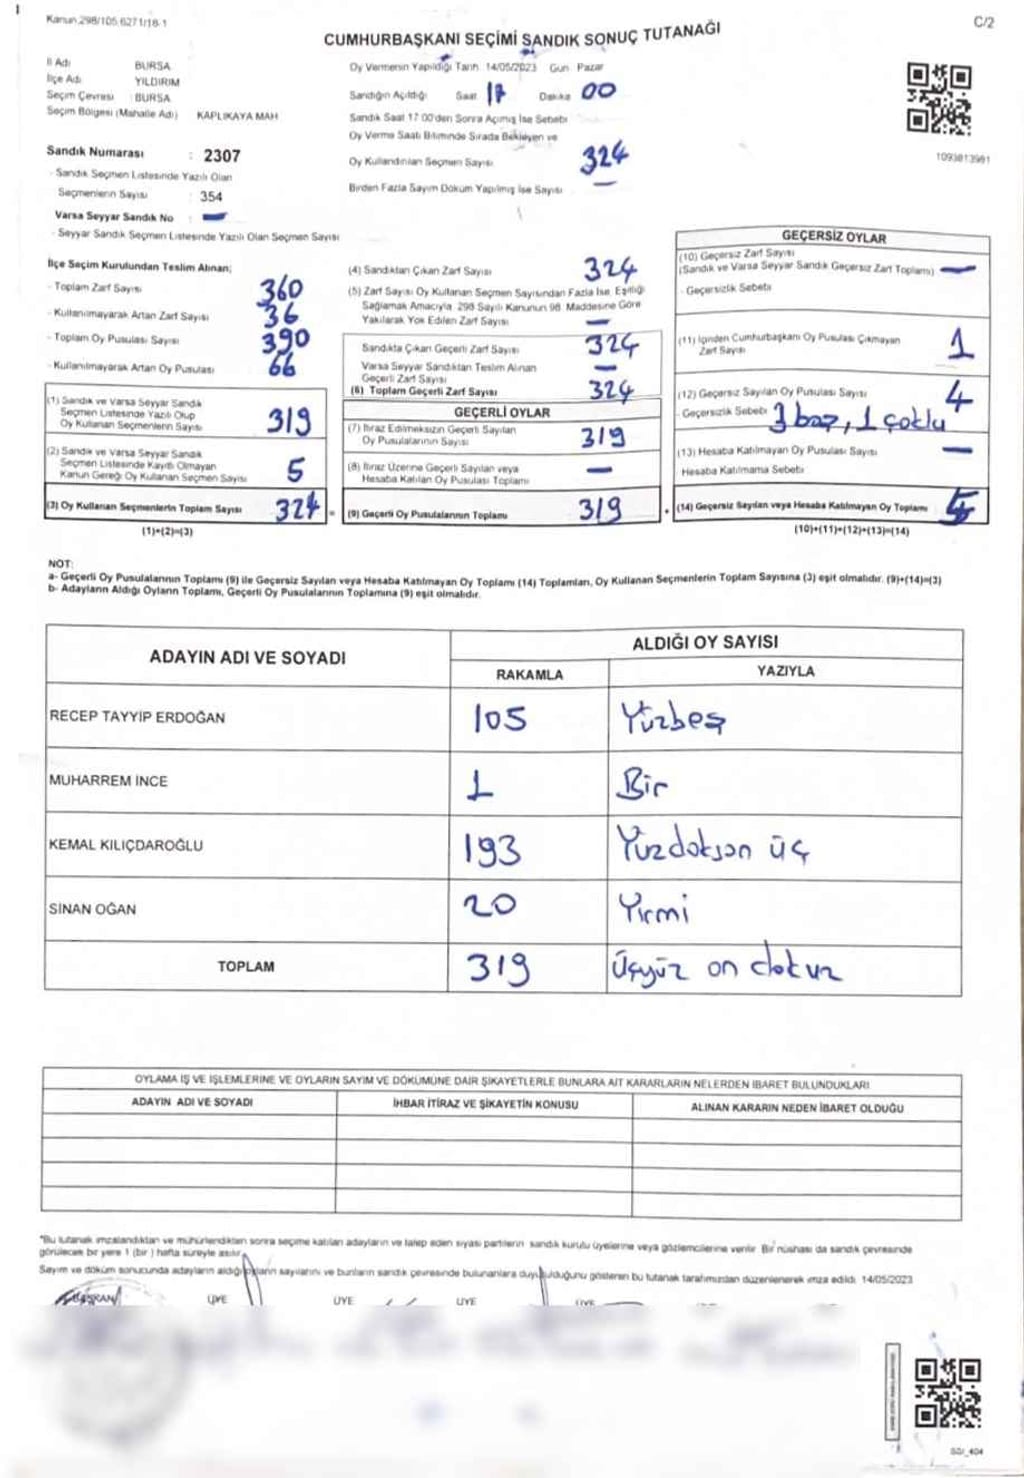 Kanun.298/105,6271/18-1
C/2
CUMHURBAŞKANI SEÇİMİ SANDIK SONUÇ TUTANAĞI
İl Adı : BURSA
İlçe Adı : YILDIRIM
Seçim Çevresi : BURSA
Seçim Bölgesi (Mahalle Adı) : KAPLIKAYA MAH
Sandık Numarası : 2307
- Sandık Seçmen Listesinde Yazılı Olan
Seçmenlerin Sayısı : 354
Varsa Seyyar Sandık No : —
- Seyyar Sandık Seçmen Listesinde Yazılı Olan Seçmen Sayısı
Oy Vermenin Yapıldığı Tarih 14/05/2023 Gün Pazar
Sandığın Açıldığı Saat 17 Dakika 00
Sandık Saat 17:00'den Sonra Açımış İse Sebebi
Oy Verme Saati Bitiminde Sırada Bekleyen ve
Oy Kullandırılan Seçmen Sayısı 324
Birden Fazla Sayım Döküm Yapılmış İse Sayısı —
1093813981
İlçe Seçim Kurulundan Teslim Alınan;
- Toplam Zarf Sayısı 360
- Kullanılmayarak Artan Zarf Sayısı 36
- Toplam Oy Pusulası Sayısı 390
- Kullanılmayarak Artan Oy Pusulası 66
(1) Sandık ve Varsa Seyyar Sandık
Seçmen Listesinde Yazılı Olup
Oy Kullanan Seçmenlerin Sayısı 319
(2) Sandık ve Varsa Seyyar Sandık
Seçmen Listesinde Kayıtlı Olmayan
Kanun Gereği Oy Kullanan Seçmen Sayısı 5
(3) Oy Kullanan Seçmenlerin Toplam Sayısı 324 =
(1)+(2)=(3)
(4) Sandıktan Çıkan Zarf Sayısı 324
(5) Zarf Sayısı Oy Kullanan Seçmen Sayısından Fazla İse, Eşitliği
Sağlamak Amacıyla 298 Sayılı Kanunun 98. Maddesine Göre
Yakılarak Yok Edilen Zarf Sayısı —
Sandıkta Çıkan Geçerli Zarf Sayısı 324
Varsa Seyyar Sandıktan Teslim Alınan
Geçerli Zarf Sayısı —
(6) Toplam Geçerli Zarf Sayısı 324
GEÇERLİ OYLAR
(7) İtiraz Edilmeksizin Geçerli Sayılan
Oy Pusulalarının Sayısı 319
(8) İtiraz Üzerine Geçerli Sayılan veya
Hesaba Katılan Oy Pusulası Toplamı —
(9) Geçerli Oy Pusulalarının Toplamı 319 +
GEÇERSİZ OYLAR
(10) Geçersiz Zarf Sayısı
(Sandık ve Varsa Seyyar Sandık Geçersiz Zarf Toplamı) —
- Geçersizlik Sebebi
(11) İçinden Cumhurbaşkanı Oy Pusulası Çıkmayan
Zarf Sayısı 1
(12) Geçersiz Sayılan Oy Pusulası Sayısı 4
- Geçersizlik Sebebi 3 boş, 1 çoklu
(13) Hesaba Katılmayan Oy Pusulası Sayısı —
Hesaba Katılmama Sebebi
(14) Geçersiz Sayılan veya Hesaba Katılmayan Oy Toplamı 5
(10)+(11)+(12)+(13)=(14)
NOT:
a- Geçerli Oy Pusulalarının Toplamı (9) ile Geçersiz Sayılan veya Hesaba Katılmayan Oy Toplamı (14) Toplamları, Oy Kullanan Seçmenlerin Toplam Sayısına (3) eşit olmalıdır. (9)+(14)=(3)
b- Adayların Aldığı Oyların Toplamı, Geçerli Oy Pusulalarının Toplamına (9) eşit olmalıdır.
ADAYIN ADI VE SOYADI
ALDIĞI OY SAYISI
RAKAMLA YAZIYLA
RECEP TAYYİP ERDOĞAN 105 Yüzbeş
MUHARREM İNCE 1 Bir
KEMAL KILIÇDAROĞLU 193 Yüzdoksan üç
SİNAN OĞAN 20 Yirmi
TOPLAM 319 Üçyüz on dokuz
OYLAMA İŞ VE İŞLEMLERİNE VE OYLARIN SAYIM VE DÖKÜMÜNE DAİR ŞİKAYETLERLE BUNLARA AİT KARARLARIN NELERDEN İBARET BULUNDUKLARI
ADAYIN ADI VE SOYADI İHBAR İTİRAZ VE ŞİKAYETİN KONUSU ALINAN KARARIN NEDEN İBARET OLDUĞU
*Bu tutanak imzalandıktan ve mühürlendikten sonra seçime katılan adayların ve talep eden siyasi partilerin sandık kurulu üyelerine veya gözlemcilerine verilir. Bir nüshası da sandık çevresinde
görülecek bir yere 1 (bir ) hafta süreyle asılır.
Sayım ve döküm sonucunda adayların aldığı oyların sayılarını ve bunların sandık çevresinde bulunanlara duyurulduğunu gösteren bu tutanak tarafımızdan düzenlenerek imza edildi. 14/05/2023
BAŞKAN ÜYE ÜYE ÜYE ÜYE